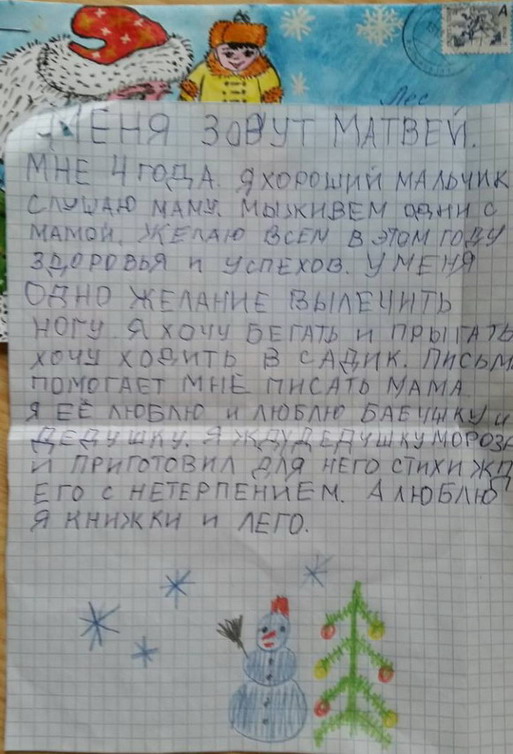 Лес
МЕНЯ ЗОВУТ МАТВЕЙ.
МНЕ 4 ГОДА. Я ХОРОШИЙ МАЛЬЧИК
СЛУШАЮ МАМУ. МЫ ЖИВЕМ ОДНИ С
МАМОЙ. ЖЕЛАЮ ВСЕМ В ЭТОМ ГОДУ
ЗДОРОВЬЯ И УСПЕХОВ. У МЕНЯ
ОДНО ЖЕЛАНИЕ ВЫЛЕЧИТЬ
НОГУ. Я ХОЧУ БЕГАТЬ И ПРЫГАТЬ
ХОЧУ ХОДИТЬ В САДИК. ПИСЬМ
ПОМОГАЕТ МНЕ ПИСАТЬ МАМА
Я ЕЁ ЛЮБЛЮ И ЛЮБЛЮ БАБУШКУ И
ДЕДУШКУ. Я ЖДУ ДЕДУШКУ МОРОЗА
И ПРИГОТОВИЛ ДЛЯ НЕГО СТИХИ ЖД
ЕГО С НЕТЕРПЕНИЕМ. А ЛЮБЛЮ
Я КНИЖКИ И ЛЕГО.